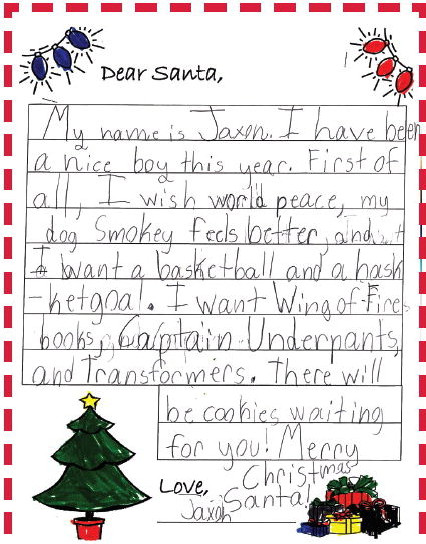 Dear Santa,
My name is Jaxon. I have been
a nice boy this year. First of
all, I wish world peace, my
dog Smokey feels better, and
I want a basketball and a bask
-ketgoal. I want Wing of Fire
books, Captain Underpants,
and Transformers. There will
be cookies waiting
for you! Merry
Christmas
Love, Santa!
Jaxon